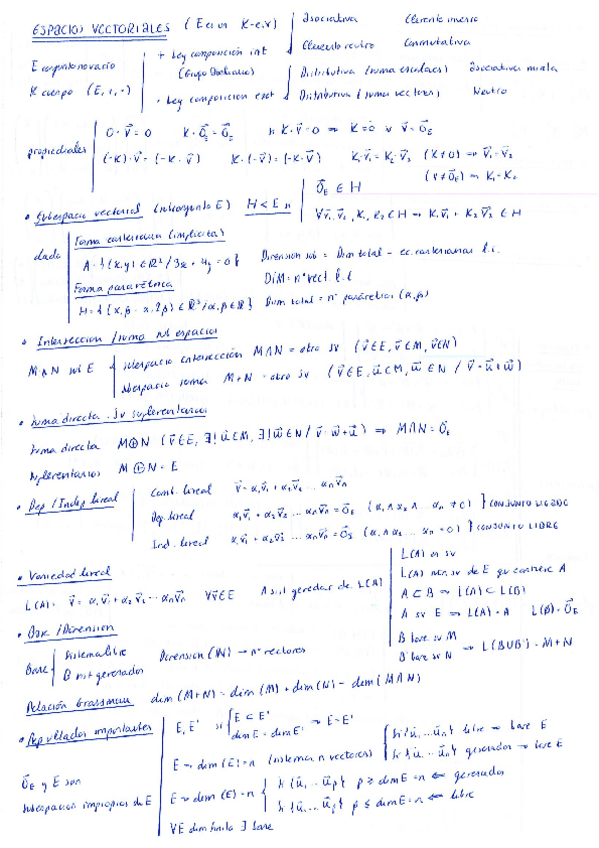 ESPACIOS VECTORIALES (E es un K-e.v)
Asociativa Elemento inverso
Elemento neutro Conmutativa
E conjunto no vacío
K cuerpo (E, +, ·)
+ Ley composición int
(Grupo Abeliano)
· Ley composición ext
Distributiva (suma escalares) asociativa mixta
Distributiva (suma vectores) Neutro
propiedades
0·v⃗ = 0 K·0⃗_E = 0⃗_E si K·v⃗ = 0 ⇒ K=0 ó v⃗=0⃗_E
(-K)·v⃗ = (-K·v⃗) K·(-v⃗) = (-K·v⃗) K·v⃗₁ = K·v⃗₂ (K≠0) ⇒ v⃗₁=v⃗₂
(v≠0⃗_E) ⇒ K₁=K₂
• Subespacio vectorial (subconjunto E) H<E si
0⃗_E ∈ H
∀v⃗₁,v⃗₂, K₁,K₂ ∈ H ⇒ K₁v⃗₁ + K₂v⃗₂ ∈ H
dado
Forma cartesiana (implícita)
A={(x,y) ∈ R² / 3x + y = 0} Dimension sub = Dim total - ec. cartesianas l.i.
DIM = nº vect. l.i
Forma paramétrica
Dim total = nº parámetros (α,β)
• Intersección / suma subespacios
M∧N sub E
subespacio intersección M∩N = otro sv (v⃗∈E, v⃗∈M, v⃗∈N)
subespacio suma M+N = otro sv (v⃗∈E, u⃗∈M, w⃗∈N / v⃗=u⃗+w⃗)
• Suma directa. Sv suplementarios
Suma directa M⊕N (v⃗∈E, ∃!u⃗∈M, ∃!w⃗∈N / v⃗=w⃗+u⃗) ⇒ M∩N=0⃗_E
Suplementarios M⊕N=E
• Dep / Indep lineal
Comb. lineal v⃗=α₁v⃗₁+α₂v⃗₂ ... αₙv⃗ₙ
Dep. lineal α₁v⃗₁+α₂v⃗₂ ... αₙv⃗ₙ=0⃗_E (α₁∧α₂∧ ... αₙ ≠ 0) } CONJUNTO LIGADO
Ind. lineal α₁v⃗₁+α₂v⃗₂ ... αₙv⃗ₙ=0⃗_E (α₁∧α₂ ... αₙ = 0) } CONJUNTO LIBRE
• Variedad lineal
L(A)= v⃗=α₁v⃗₁+α₂v⃗₂ ... αₙv⃗ₙ ∀v⃗∈E A sist. generador de L(A)
L(A) es sv
L(A) min. sv de E que contiene A
A⊂B ⇒ L(A)⊂L(B)
A sv E ⇒ L(A)=A L(Ø)=0⃗_E
B base sv M
B' base sv N ⇒ L(B∪B')=M+N
• Base / Dimension
Base
Sistema libre
B sist generador
Dimension (W) → nº vectores
Relación Grassmann dim(M+N)=dim(M)+dim(N)-dim(M∩N)
• Resultados importantes
E, E' si E⊂E'
dim E = dim E' ⇒ E=E'
E ⇒ dim(E)=n (sistema n vectores)
Si {u⃗₁ ... u⃗ₙ} libre ⇒ base E
Si {u⃗₁ ... u⃗ₙ} generador ⇒ base E
0⃗_E y E son
subespacios impropios de E
E ⇒ dim(E)=n
Si {u⃗₁ ... u⃗p} p ≥ dim E=n ⇐ generador
Si {u⃗₁ ... u⃗p} p ≤ dim E=n ⇐ libre
∀E dim finita ∃ base